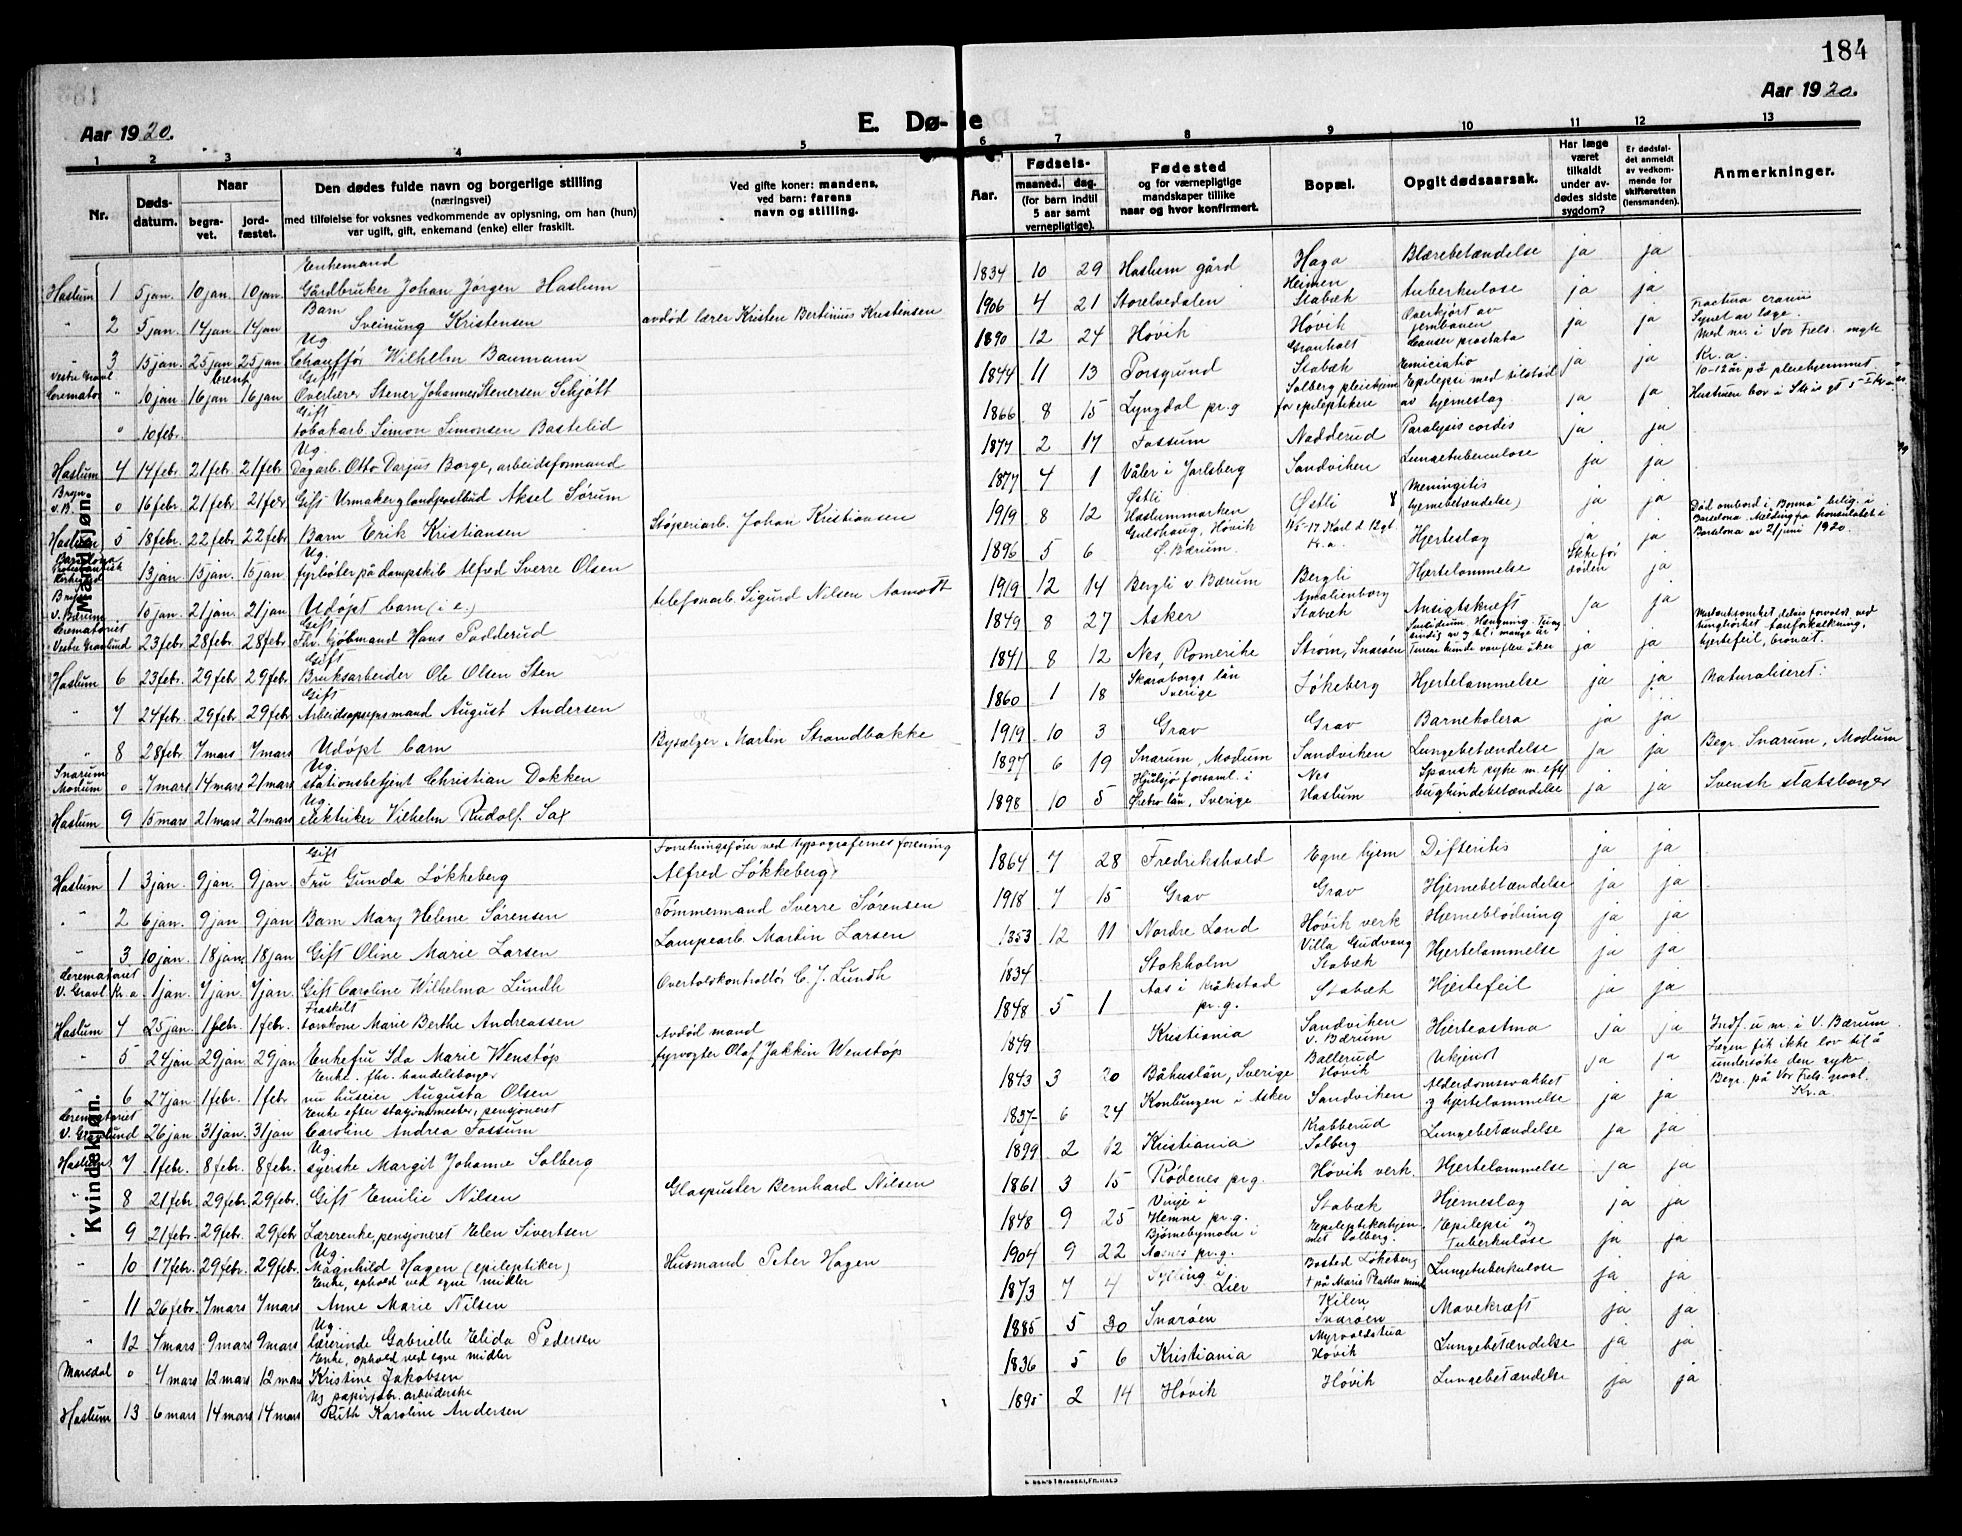 184
Aar 1920.
E. Døde
Aar 1920.
1 2 3 4 5 6 7 8 9 10 11 12 13
Nr.
Døds-datum.
Naar
begra-vet.
jord-fæstet.
Den dødes fulde navn og borgerlige stilling
(næringsvei)
med tilføielse for voksnes vedkommende av oplysning, om han (hun)
var ugift, gift, enkemand (enke) eller fraskilt.
Ved gifte koner: mandens,
ved barn: farens
navn og stilling.
Aar.
Fødsels-
maaned. dag.
(for barn indtil
5 aar samt
vernepligtige).
Fødested
og for værnepligtige
mandskaper tillike
naar og hvor konfirmert.
Bopæl.
Opgit dødsaarsak.
Har læge
været
tilkaldt
under av-
dødes sidste
sygdom?
Er dødsfal-
det anmeldt
av vedkom-
mende for
skifteretten
(lensmanden).
Anmerkninger.
Mandkjøn.
Haslum 1 5 jan. 10 jan. 10 jan. Enkemand Gårdbruker Johan Jørgen Haslum 1834 10 29 Haslum gård Haga Blærebetændelse ja ja
" 2 5 jan. 14 jan 14 jan Barn Sveinung Kristensen avdød lærer Kristen Bertinius Kristensen 1906 4 21 Storelvedalen Heimen Stabæk tuberkulose ja ja
" 3 15 jan. 25 jan 25 jan Ug Chauffør Wilhelm Baumann 1890 12 24 Høvik Høvik Overkjørt av jernbanen ja ja Fractura cranii Synet av læge.
Vestre Gravl Cremator " 10 jan. 16 jan 16 jan Gift Overlærer Stener Johannes Stenersen Schjøtt 1844 11 13 Porsgrund Granholt Stabæk Cancer prostata ja ja Med m. i Vor Frels. mgh Kr.a.
" 10 febr. Gift tobakarb. Simon Simonsen Bastelid 1866 8 15 Lyngdal pr.g Solberg pleiehjem for epileptikere Epilepsi med tilstød av hjerneslag ja ja 10-12 år på pleiehjemmet
Haslum 4 14 febr 21 febr 21 febr Ug. Dagarb. Otto Darjus Borge, arbeidsformand 1877 2 17 Fossum Nadderud Paralysis cordis ja ja
Bryn v.B. o 16 febr. 21 febr. 21 febr Gift Urmaker glandpostbud Aksel Sørum 1877 4 1 Våler i Jarlsberg Sandviken Lungetuberculose ja ja
Haslum 5 18 febr. 22 febr 22 febr Barn Erik Kristiansen Støperiarb. Johan Kristiansen 1919 8 12 Østli Haslummarken Østli Meningitis (hjernebetændelse) ja ja
Barcelona Protestantisk kirkegård 13 jan 15 jan. 15 jan Ug. fyrbøter på dampskib Alfred Sverre Olsen 1896 5 6 Gulehaug, Høvik Ø. Bærum. Kr.a. Hjerteslag ja ja Død ombord i "Borma" belig. i Barcelona. Melding fra konsulatet i Barcelona av 21 juni 1920.
Bryn V. Bærum 10 jan. 21 jan 21 jan Udøpt barn (i e.) telefonarb. Sigurd Nilsen Aamodt 1919 12 14 Bergli v Bærum Bergli Hjertelammelse Ikke før døden ja
Crematoriet Vestre Gravlund 23 febr. 28 febr. 28 febr. Gift. Fhv. Gjøbmand Hans Padderud 1849 8 27 Asker Amalienborg Stabæk Ansigtskræft ja ja
Haslum 6 23 febr. 29 febr 29 febr Gift Bruksarbeider Ole Olsen Sten 1841 8 12 Nes, Romerike Strøm, Snarøen Suicidium Hængning ja ja hjertefeil, broncit.
" 7 24 febr. 29 febr 29 febr Gift Arbeidsopsynsmand August Andersen 1860 1 18 Skaraborgs län Sverige Løkeberg Hjertelammelse ja ja Naturaliseret.
" 8 28 febr. 7 mars 7 mars Udøpt barn Bysælger Martin Strandbakke 1919 10 3 Grav Grav Barnekolera ja ja
Snarum Modum o 7 mars 14 mars 21 mars Ug. stationsbetjent Christian Dokken 1897 6 19 Snarum, Modum Sandviken Lungebetændelse ja ja Begr. Snarum, Modum
Haslum 9 15 mars 21 mars 21 mars Ug elektriker Vilhelm Rudolf Sax 1898 10 5 Hjulsjø forsaml. i Ørebro län, Sverige Nes Haslum Spansk syke m. eft bughindebetændelse ja ja Svensk statsborger
Kvindekjøn.
Haslum 1 3 jan. 9 jan. 9 jan. Gift Fru Gunda Løkkeberg Forretningsfører ved typografernes forening Alfred Løkkeberg 1864 7 28 Fredrikshald Egne hjem Difteritis ja ja
" 2 6 jan. 9 jan 9 jan Barn Mary Helene Sørensen Tømmermand Sverre Sørensen 1918 7 15 Grav Grav Hjernebetændelse ja ja
" 3 10 jan. 18 jan. 18 jan Gift Oline Marie Larsen Lampearb. Martin Larsen 1853 12 11 Nordre Land Høvik verk Hjerneblødning ja ja
Crematoriet V. Gravl Kr.a 1 jan. 7 jan. 7 jan. Gift Caroline Wilhelma Lundh Overtoldkontrollør C. J. Lundh 1834 Stokholm Villa Gudvang Stabæk Hjertelammelse ja ja
Haslum 4 25 jan. 1 febr. 1 febr. Fraskilt tørrkone Marie Berthe Andreassen 1848 5 1 Aas i Kråkstad pr.g. Stabæk Hjertefeil ja ja
" 5 24 jan 29 jan. 29 jan Enkefru Ida Marie Wenstøp Avdød mand fyrvogter Olaf Jakkin Wenstøp 1849 Kristiania Sandviken v. Bærum Hjerteastma ja ja Indf. u m. i V. Bærum.
" 6 27 jan. 1 febr. 1 febr Enke. fhv. handelsborger nu huseier Augusta Olsen 1843 3 20 Båhuslän, Sverige Ballerud Høvik Ukjendt ja ja Lægen fik ikke lov til å undersøke den syke
Crematoriet V. Gravlund 26 jan 31 jan. 31 jan Enke efter stasjonsmester, pensjoneret Caroline Andrea Fossum 1837 6 24 Konlungen i Asker Sandviken Alderdomssvakhet og hjertelammelse ja ja Begr. på Vor Frels. gravl. Kr.a.
Haslum 7 1 febr. 8 febr. 8 febr. Ug. syerske Margit Johanne Solberg 1899 2 12 Kristiania Krabberud Solberg Lungebetændelse ja ja
" 8 21 febr. 29 febr. 29 febr. Gift Emilie Nilsen Glaspuster Bernhard Nilsen 1861 3 15 Rødenes pr.g. Høvik verk. Hjertelammelse ja ja
" 9 21 febr. 29 febr. 29 febr Lærerenke, pensjoneret Elen Sivertsen 1848 9 25 Vinje i Hemne pr.g. Stabæk Hjerneslag ja ja
" 10 17 febr. 29 febr. 29 febr. Ug. Magnhild Hagen (epileptiker) Husmand Peter Hagen 1904 9 22 Bjørnebymoen i Aasnes pr.g. Epileptikerhjemmet Solberg. Epilepsi og Tuberkulose ja ja
" 11 26 febr. 7 mars 7 mars Enke, ophold ved egne midler Anne Marie Nilsen 1873 7 4 Sylling i Lier Bosted Løkeberg Lungetuberkulose ja ja
" 12 7 mars 9 mars 9 mars Ug. lærerinde Gabrielle Elida Pedersen 1885 5 30 Snarøen Kilen Snarøen Mavekræft ja ja
Maridal o 4 mars 12 mars 12 mars Enke, ophold ved egne midler Kristine Jakobsen 1836 5 6 Kristiania Myrvoldstua Høvik Lungebetændelse ja ja
Haslum 13 6 mars 14 mars 14 mars Ug papirfabr. arbeiderske Ruth Karoline Andersen 1895 2 14 Høvik Høvik Lungebetændelse ja ja